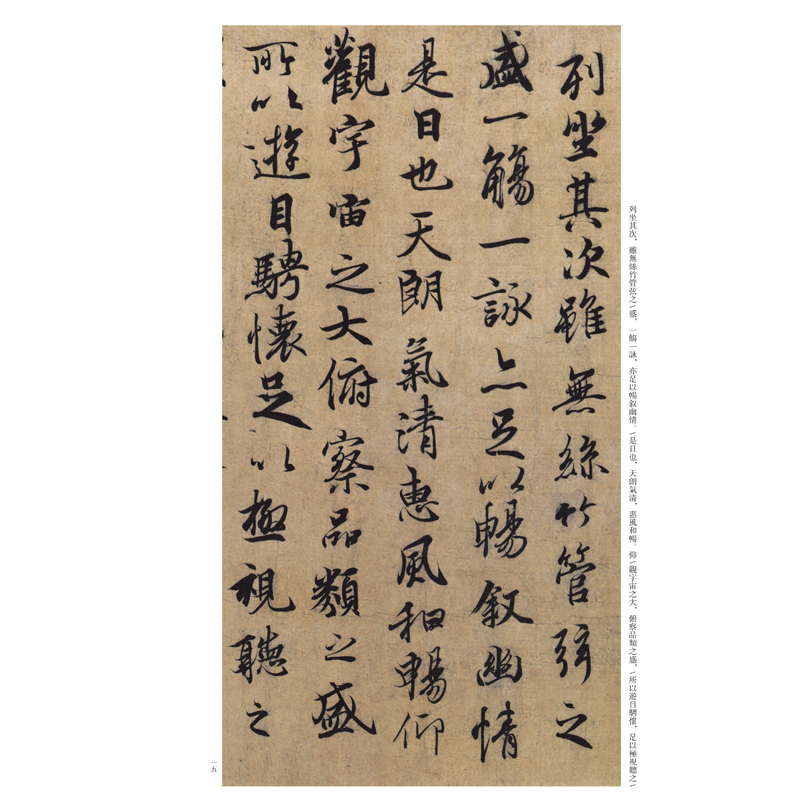 列坐其次雖無絲竹管弦之
盛一觴一詠亦足以暢敘幽情
是日也天朗氣清惠風和暢仰
觀宇宙之大俯察品類之盛
所以遊目騁懷足以極視聽之
列坐其次，雖無絲竹管弦之\盛，一觴一詠，亦足以暢叙幽情。\是日也，天朗氣清，惠風和暢。仰\觀宇宙之大，俯察品類之盛，\所以遊目騁懷，足以極視聽之\
一五